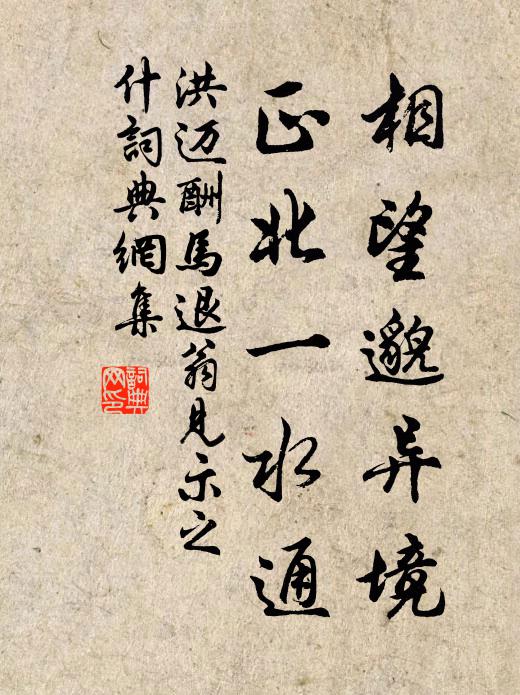 相望邈异境
正北一水通
洪迈酬馬退翁見示之
什詞典網集
詞典网印